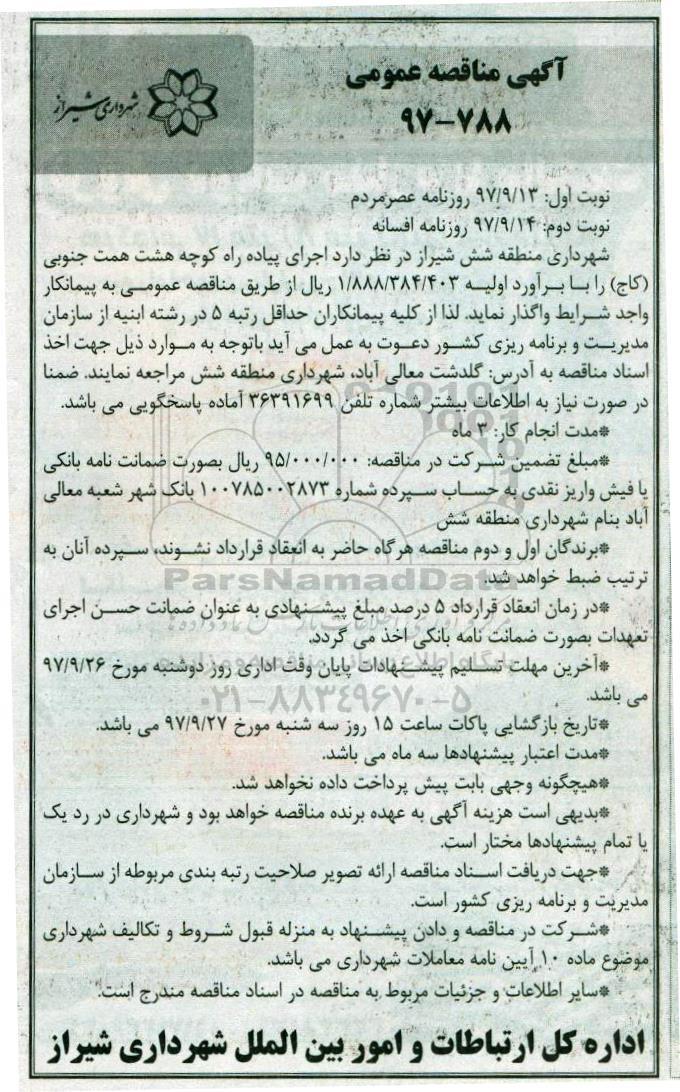 آگهی مناقصه عمومی
۹۷-۷۸۸
شهرداری شیراز
نوبت اول: ۹۷/۹/۱۳ روزنامه عصرمردم
نوبت دوم: ۹۷/۹/۱۴ روزنامه افسانه
شهرداری منطقه شش شیراز در نظر دارد اجرای پیاده راه کوچه هشت همت جنوبی
(کاج) را با برآورد اولیه ۱/۸۸۸/۳۸۴/۴۰۳ ریال از طریق مناقصه عمومی به پیمانکار
واجد شرایط واگذار نماید. لذا از کلیه پیمانکاران حداقل رتبه ۵ در رشته ابنیه از سازمان
مدیریت و برنامه ریزی کشور دعوت به عمل می آید باتوجه به موارد ذیل جهت اخذ
اسناد مناقصه به آدرس: گلدشت معالی آباد، شهرداری منطقه شش مراجعه نمایند. ضمنا
در صورت نیاز به اطلاعات بیشتر شماره تلفن ۳۶۳۹۱۶۹۹ آماده پاسخگویی می باشد.
*مدت انجام کار: ۳ ماه
*مبلغ تضمین شرکت در مناقصه: ۹۵/۰۰۰/۰۰۰ ریال بصورت ضمانت نامه بانکی
یا فیش واریز نقدی به حساب سپرده شماره ۱۰۰۷۸۵۰۰۲۸۷۳ بانک شهر شعبه معالی
آباد بنام شهرداری منطقه شش
*برندگان اول و دوم مناقصه هرگاه حاضر به انعقاد قرارداد نشوند، سپرده آنان به
ترتیب ضبط خواهد شد.
ParsNamadData
*در زمان انعقاد قرارداد ۵ درصد مبلغ پیشنهادی به عنوان ضمانت حسن اجرای
تعهدات بصورت ضمانت نامه بانکی اخذ می گردد.
*آخرین مهلت تسلیم پیشنهادات پایان وقت اداری روز دوشنبه مورخ ۹۷/۹/۲۶
می باشد.
۰۲۱-۸۸۳۴۹۶۷۰-۵
*تاریخ بازگشایی پاکات ساعت ۱۵ روز سه شنبه مورخ ۹۷/۹/۲۷ می باشد.
*مدت اعتبار پیشنهادها سه ماه می باشد.
*هیچگونه وجهی بابت پیش پرداخت داده نخواهد شد.
*بدیهی است هزینه آگهی به عهده برنده مناقصه خواهد بود و شهرداری در رد یک
یا تمام پیشنهادها مختار است.
*جهت دریافت اسناد مناقصه ارائه تصویر صلاحیت رتبه بندی مربوطه از سازمان
مدیریت و برنامه ریزی کشور است.
*شرکت در مناقصه و دادن پیشنهاد به منزله قبول شروط و تکالیف شهرداری
موضوع ماده ۱۰ آیین نامه معاملات شهرداری می باشد.
*سایر اطلاعات و جزئیات مربوط به مناقصه در اسناد مناقصه مندرج است.
اداره کل ارتباطات و امور بین الملل شهرداری شیراز